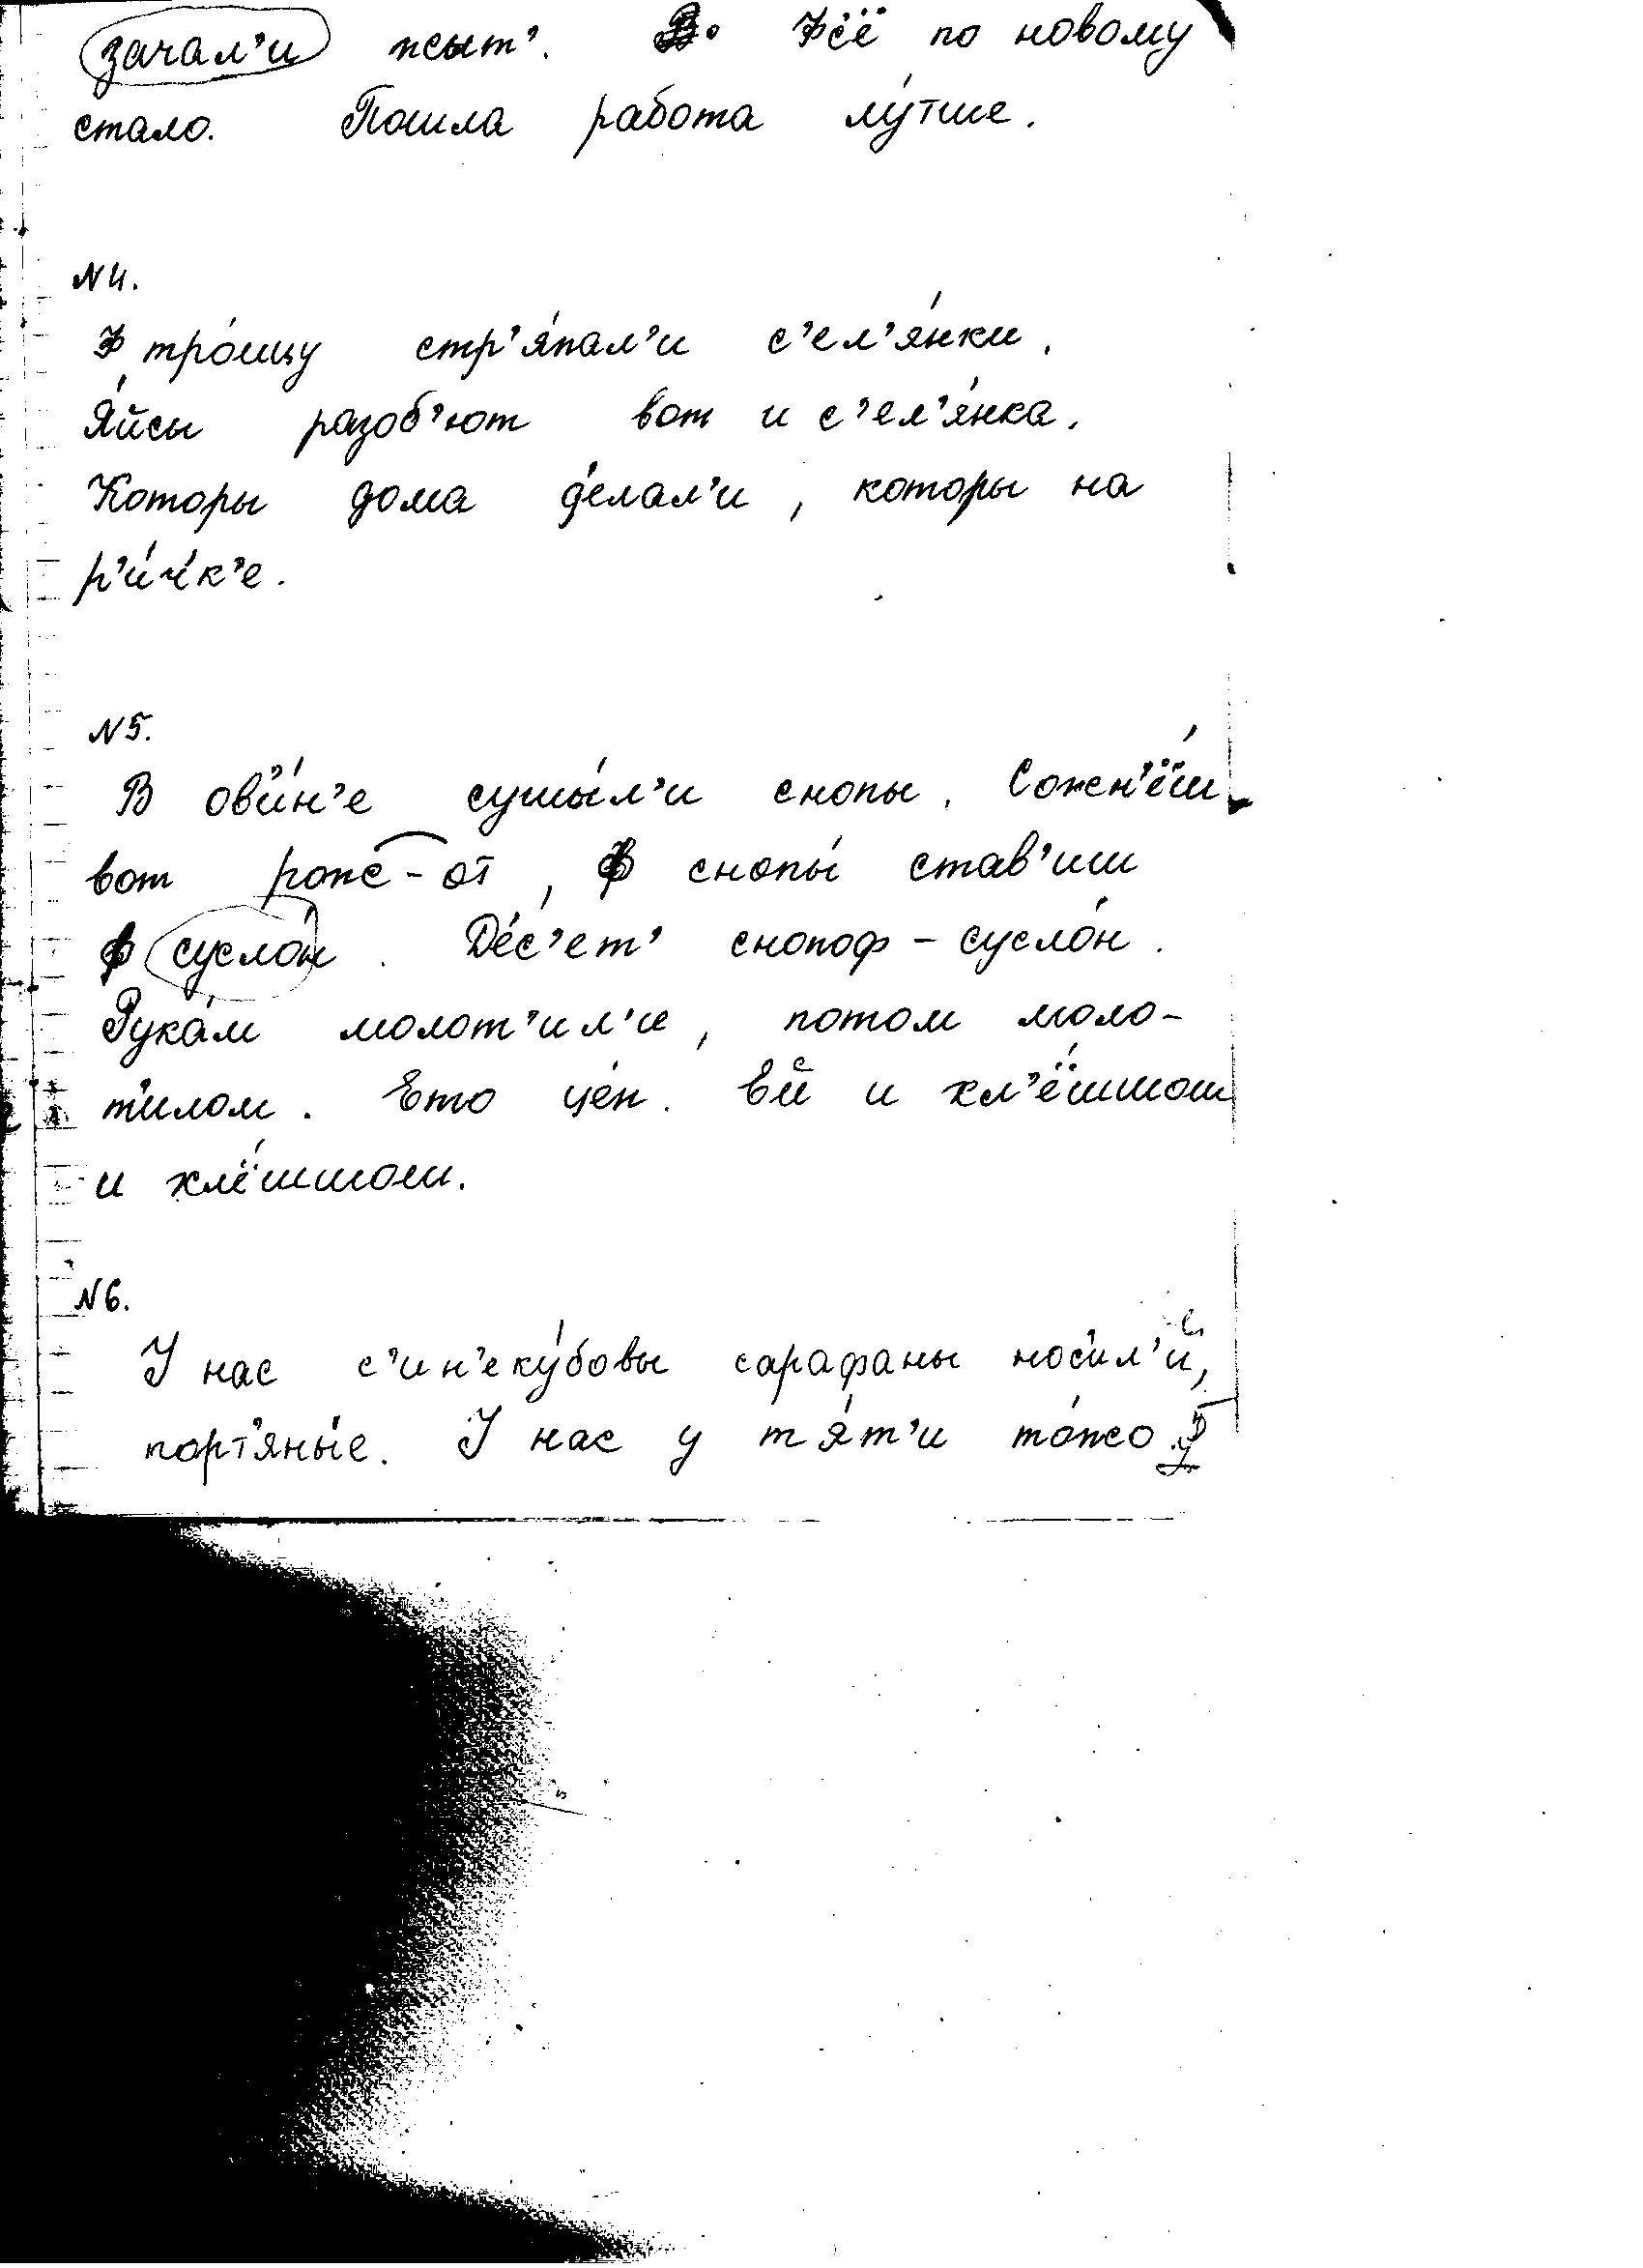 зачал'и жыт'. Фс'ё по новому
стало. Пошла работа лу́тше.
N 4.
Ф тро́ицу стр'я́пал'и с'ел'я́нки.
Я́йсы разоб'ют вот и с'ел'я́нка.
Которы дома д'елал'и, которы на
р'и́ч'к'е.
N 5.
В ов'и́н'е сушы́л'и снопы. Сожн'ё́ш
вот рожс-от, ф снопы́ став'иш
ф сусло́н. Де́с'ет' снопоф - сусло́н.
Рука́м молот'ил'и, потом моло-
т'илом. Ето це́п. Ей и хл'ё́шшош
и хлё́шшош.
N 6.
У нас с'ин'еку́бовы сарафаны нос'ил'и,
порт'яны́е. У нас у тя́т'и то́жо